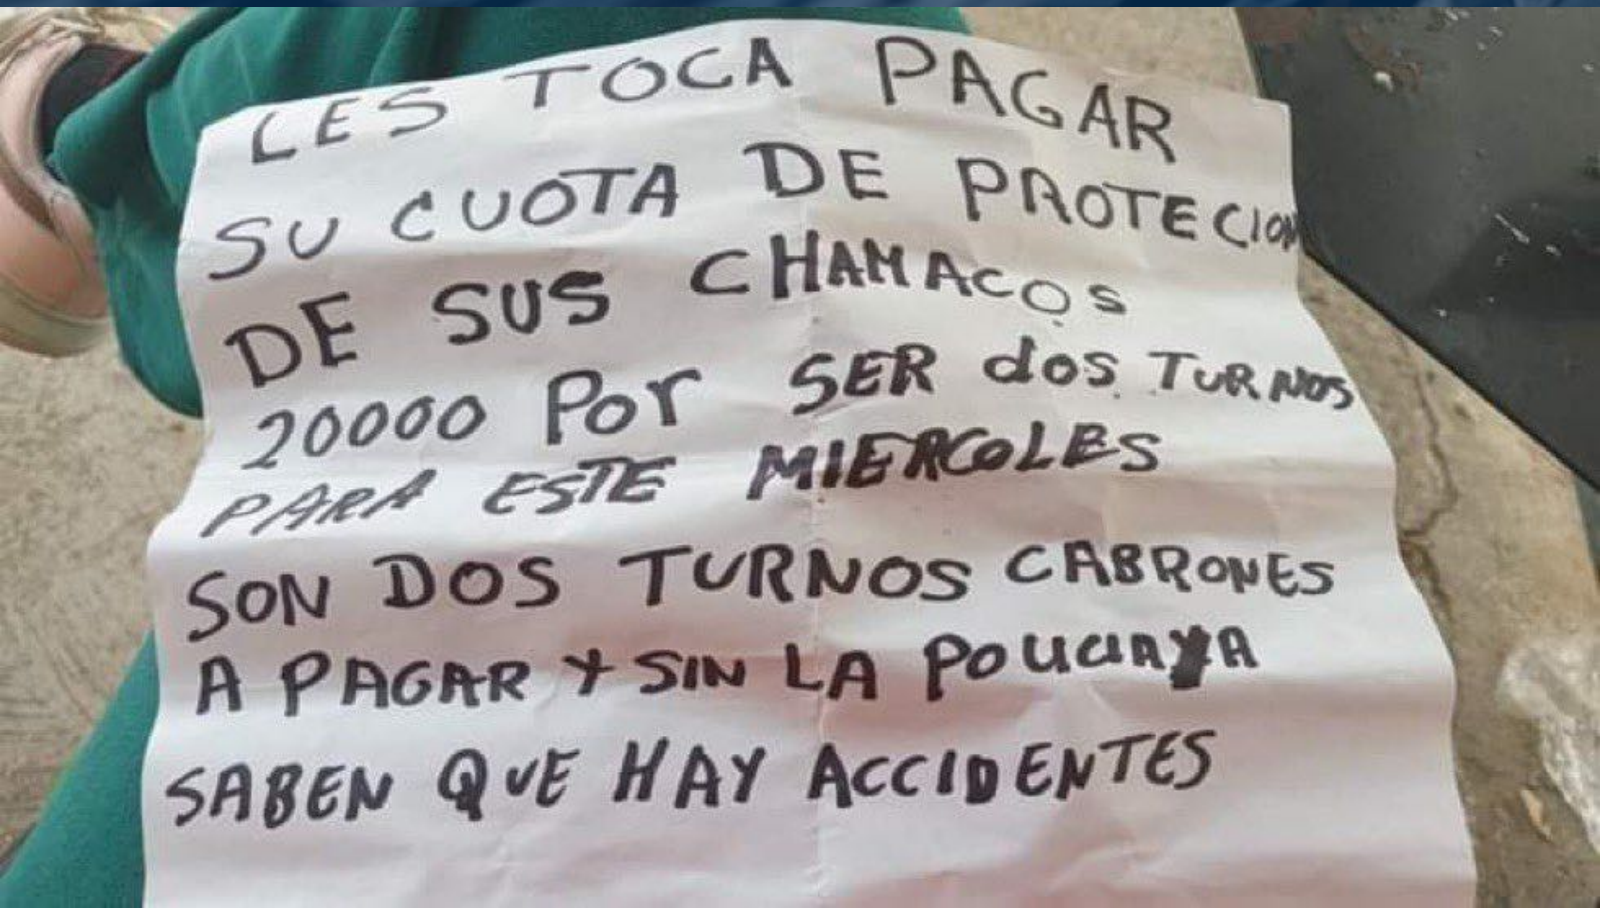 LES TOCA PAGAR
SU CUOTA DE PROTECION
DE SUS CHAMACOS
20000 Por SER dos TURNOS
PARA ESTE MIERCOLES
SON DOS TURNOS CABRONES
A PAGAR Y SIN LA POLICIA YA
SABEN QUE HAY ACCIDENTES